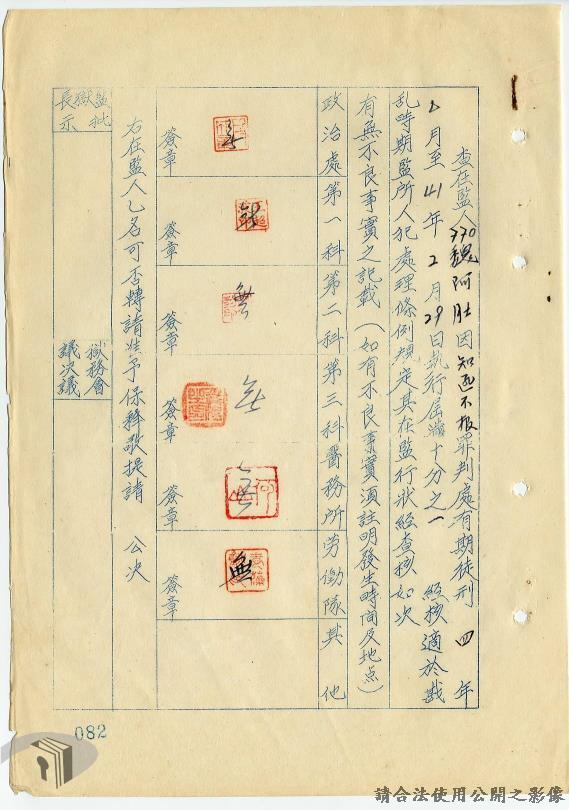 查在監人770魏阿肚因知匪不報罪判處有期徒刑四年
月至41年2月29日執行屆滿十分之一經核適於戡
亂時期監所人犯處理條例規定其在監行狀經查核如次
有無不良事實之記載(如有不良事實須註明發生時間及地点)
政治處 第一科 第二科 第三科 醫務所 劳働隊 其他
無
簽章
無
簽章
無
簽章
無
簽章
簽章
無
簽章
右在監人乙名可否轉請准予保釋敬提請 公決
監獄長批示
獄務會議決議
082
請合法使用公開之影像